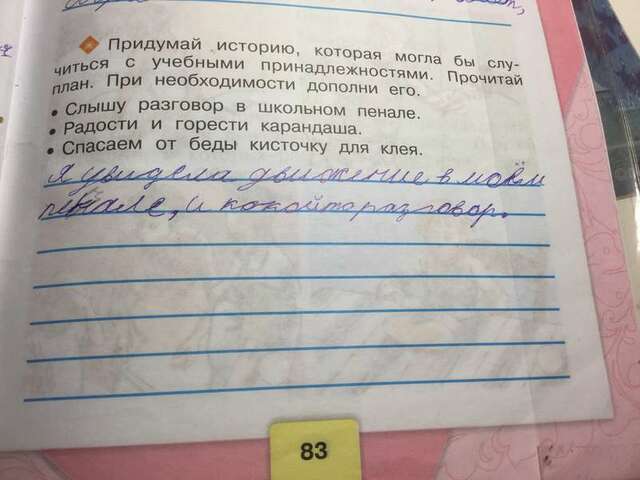 Придумай историю, которая могла бы слу-
читься с учебными принадлежностями. Прочитай
план. При необходимости дополни его.
• Слышу разговор в школьном пенале.
• Радости и горести карандаша.
• Спасаем от беды кисточку для клея.
Я увидела движение в моём
пенале, и какойто разговор.
83